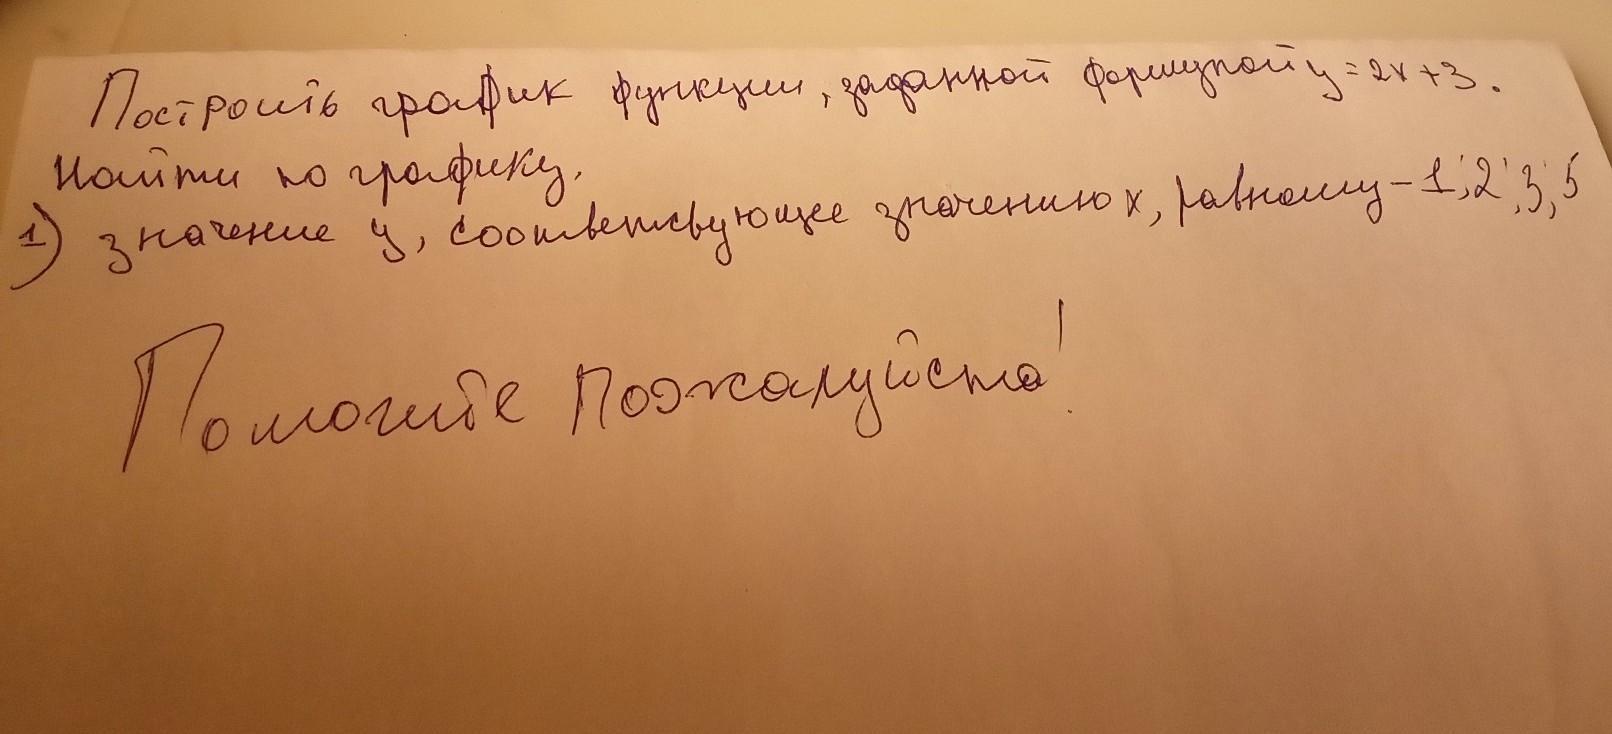 Построить график функции, заданной формулой y=2x+3.
Найти по графику.
1) значение y, соответсвующее значению x, равному -1; 2; 3; 5
Помогите пожалуйста!